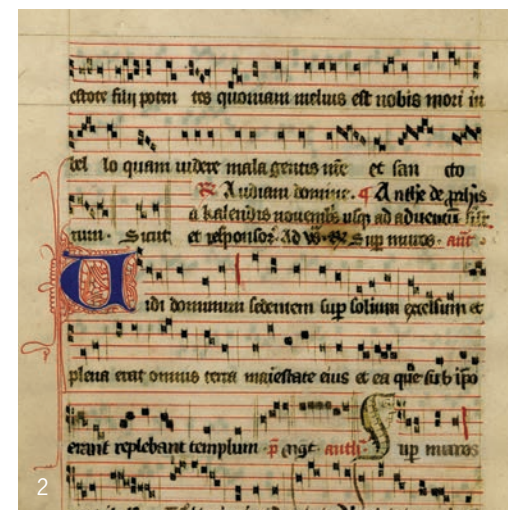 estote filii poten tes quoniam melius est nobis mori in
bel lo quam uidere mala gentis nr̄e et san cto
Audiam domine. ¶ Anthe de ꝓphis
a kalendis nouembris usq ad aduentū
rum. Sicut et responsor. Ad Sup muros. ant.
Vidi dominum sedentem sup solium excelsum et
plena erat omnis terra maiestate eius et ea que sub ip̄o
erant replebant templum Sup muros
2